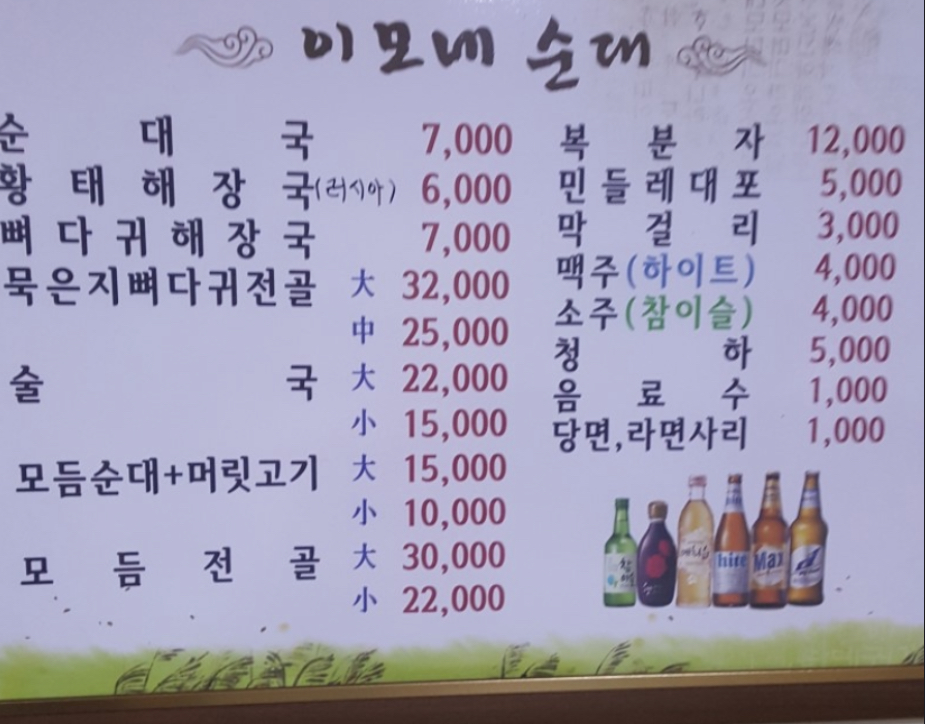 이모네 순대
순대국 7,000
황태해장국(러시아) 6,000
뼈다귀해장국 7,000
묵은지뼈다귀전골 大 32,000
中 25,000
술국 大 22,000
小 15,000
모듬순대+머릿고기 大 15,000
小 10,000
모듬전골 大 30,000
小 22,000
복분자 12,000
민들레대포 5,000
막걸리 3,000
맥주(하이트) 4,000
소주(참이슬) 4,000
청하 5,000
음료수 1,000
당면,라면사리 1,000
hite
Max